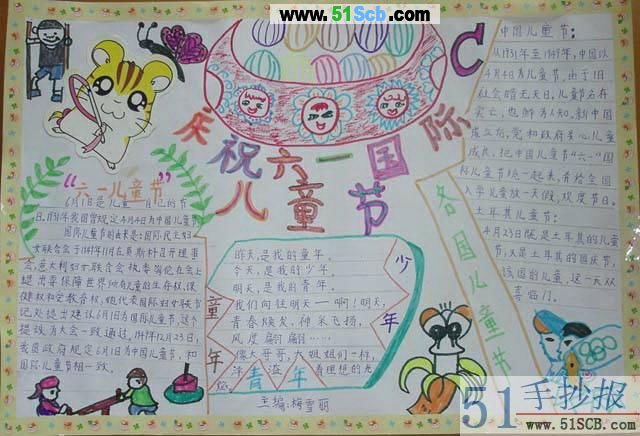 www.51Scb.com
庆祝六一国际
儿童节
“六一儿童节”
6月1是儿童自己的节
日,1931年我国曾规定4月4日为中国儿童节
国际儿童节的由来是:国际民主妇
女联合会于1949年11月在莫斯科召开理事
会,意大利妇女联合会执委会在会上
提出要保障世界所有儿童的生存权,保
健权和受教育权,她代表国际妇女联书
记处提出建议6月1日为国际儿童节,这个
提议为大会一致通过。1949年12月23日,
我员政府规定6月1日为中国儿童节,和
国际儿童节相一致。
童年
昨天,是我的童年。
今天,是我的少年。
明天,是我的青年。
我们向往明天——啊!明天,
青春焕发,神采飞扬,
风度翩翩……
像大哥哥,大姐姐们一样,
洋溢着理想的光
少年
青年
主编:梅雪丽
各国儿童节
中国儿童节:
从1931年至1949年,中国以
4月4日为儿童节,由于旧
社会暗无天日,儿童节名存
实亡,也鲜为人知。新中国
成立后,党和政府关心儿童
成长,把中国儿童节“六一”国
际儿童节统一起来,并给全国
入学儿童放一天假,欢度节日。
土耳其儿童节:
4月23日既是土耳其的儿童
节,又是土耳其的国庆节,
该国的儿童,这一天双
喜临门。
51手抄报
www.51SCB.com